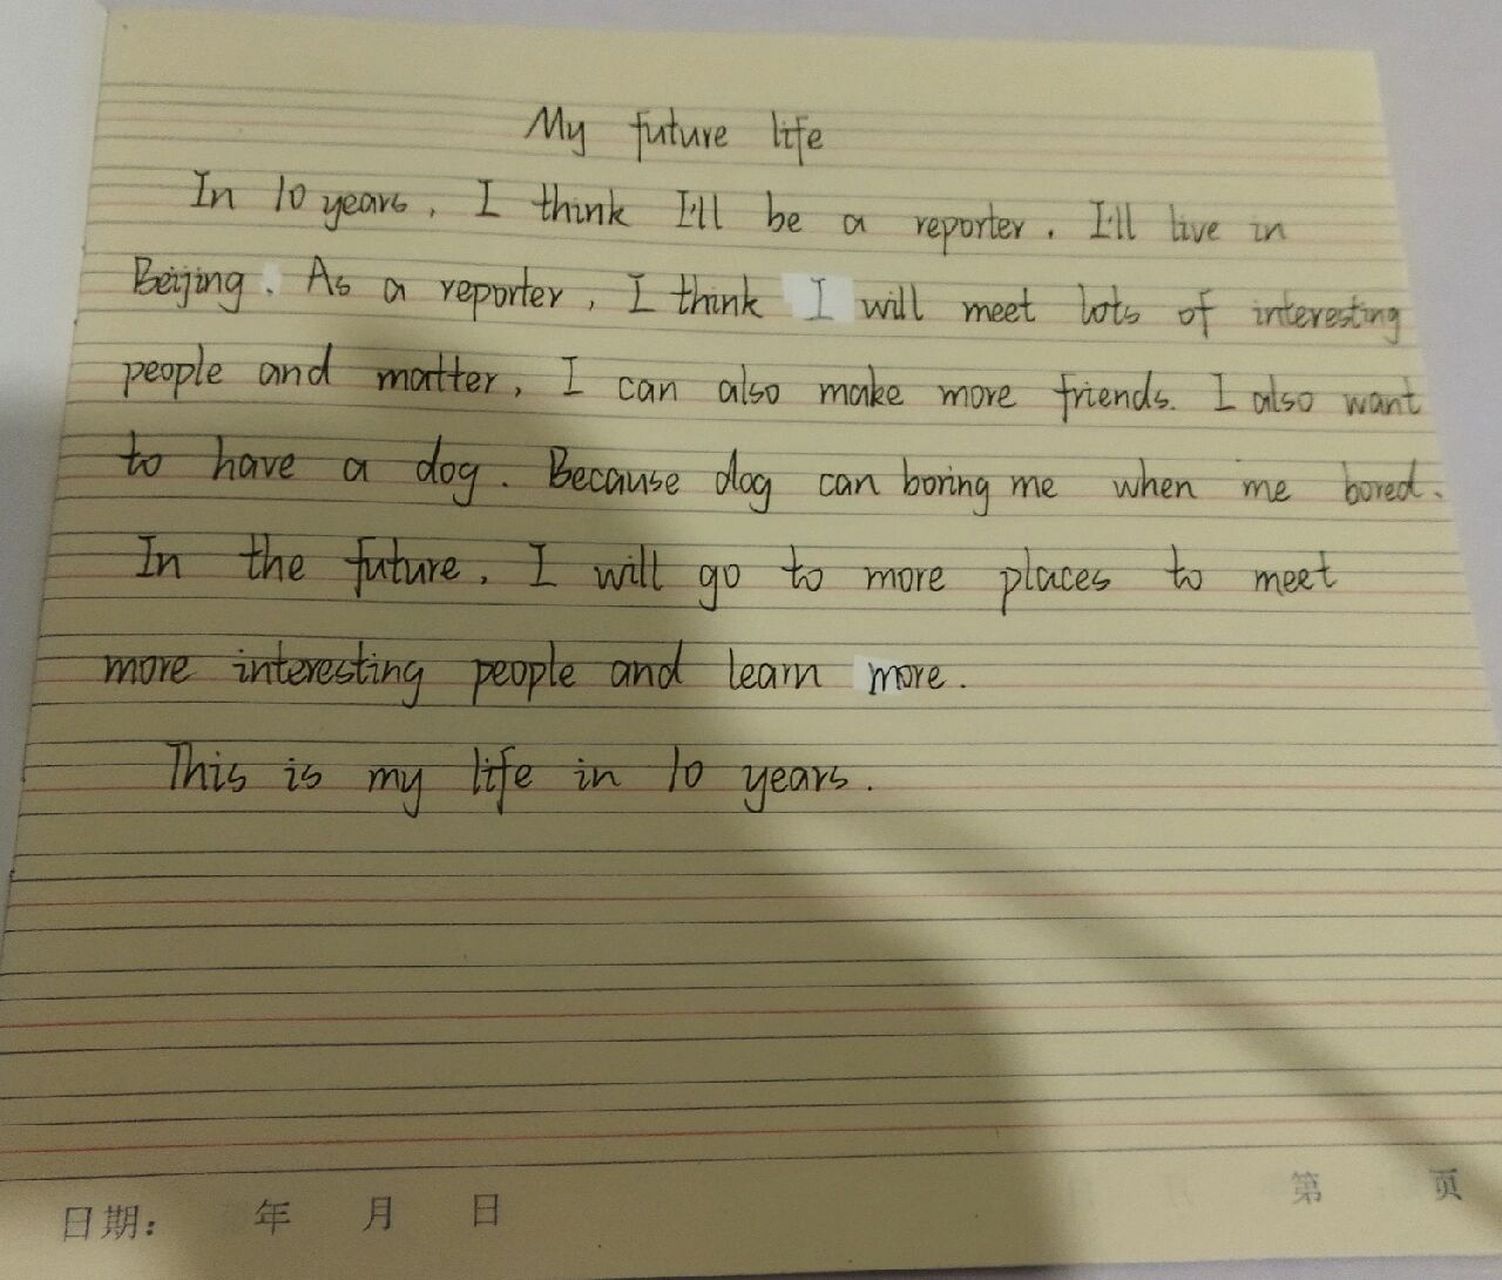 My future life
In 10 years, I think I'll be a reporter. I'll live in
Beijing. As a reporter, I think I will meet lots of interesting
people and matter, I can also make more friends. I also want
to have a dog. Because dog can boring me when me bored.
In the future, I will go to more places to meet
more interesting people and learn more.
This is my life in 10 years.
日期: 年 月 日 第 页